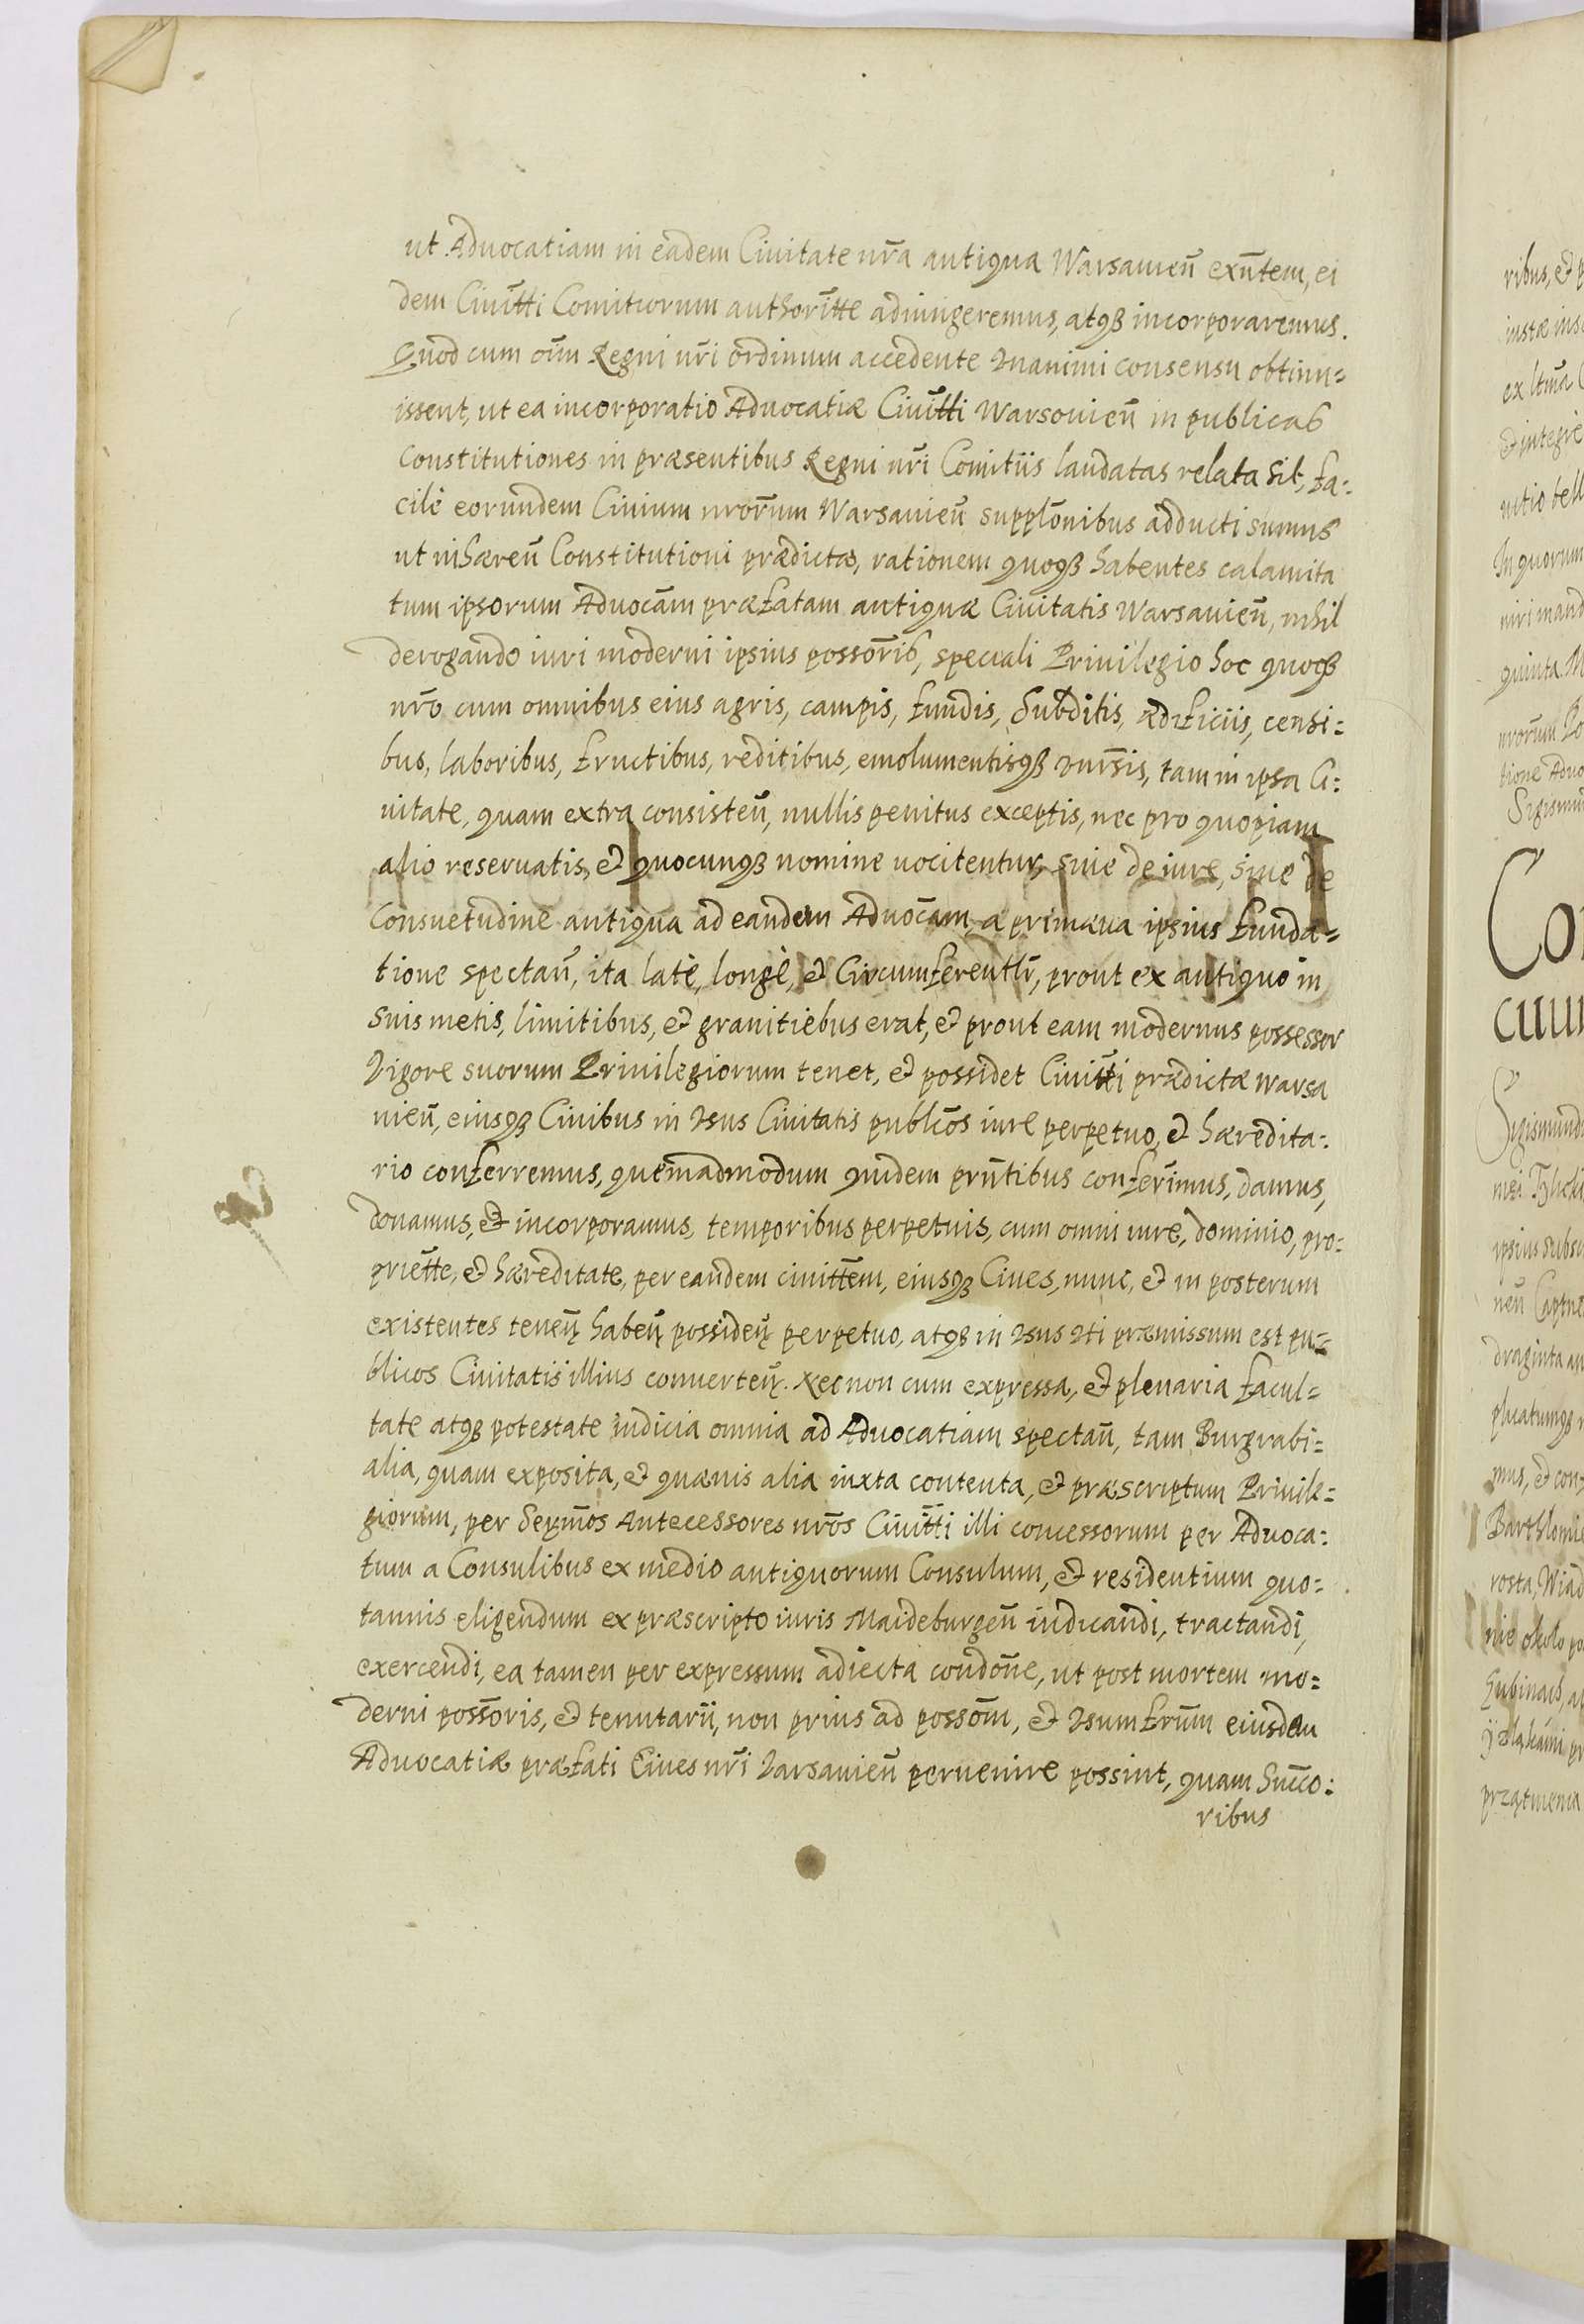 ut Aduocatiam in eadem Ciuitate nr̃a antiqua Warsauieñ exñtem, ei
dem Ciuit̃ti Comitiorum authorit̃te adiungeremus, atqȝ incorporaremus.
Quod cum oĩm Regni nr̃i ordinum accedente vnanimi consensu obtinu=
issent, ut ea incorporatio Aduocatiæ Ciuit̃ti Warsouieñ in publicas
Constitutiones in præsentibus Regni nr̃i Comitiis laudatas relata sit, fa=
cilè eorundem Ciuium nror̃um Warsauieñ supplõnibus adducti sumus
ut inhæreñ Constitutioni prædictæ, rationem quoqȝ habentes calamita
tum ipsorum Aduocãm præfatam antiquæ Ciuitatis Warsauieñ, nihil
derogando iuri moderni ipsius possõris, speciali Priuilegio hoc quoqȝ
nr̃o cum omnibus eius agris, campis, fundis, Subditis, ædificiis, censi=
bus, laboribus, fructibus, reditibus, emolumentisqȝ vnr̃sis, tam in ipsa Ci=
uitate, quam extra consisteñ, nullis penitus exceptis, nec pro quopiam
alio reseruatis, et quocunqȝ nomine uocitentur, siue de iure, siue de
Consuetudine antiqua ad eandem Aduocãm, a primæua ipsius funda=
tione spectañ, ita latè, longè, et Circumferentlr̃, prout ex antiquo in
suis metis, limitibus, et granitiebus erat, et prout eam modernus possessor
Vigore suorum Priuilegiorum tenet, et possidet Ciuit̃ti prædictæ Warsa
uieñ, eiusqȝ Ciuibus in vsus Ciuitatis publc̃os iure perpetuo, et hæredita=
rio conferremus, quemadmodum quidem prñtibus confer̃imus, damus,
donamus, et incorporamus, temporibus perpetuis, cum omni iure, dominio, pro=
priet̃te, et hæreditate, per eandem ciuit̃tem, eiusqȝ Ciues, nunc, et in posterum
existentes teneñ habeñ possideñ perpetuo, atqȝ in vsus vti præmissum est pu=
blicos Ciuitatis illius conuerteñ. Nec non cum expressa, et plenaria facul=
tate atqȝ potestate iudicia omnia ad Aduocatiam spectañ, tam Burgrabi=
alia, quam exposita, et quæuis alia iuxta contenta, et præscriptum Priuile=
giorum, per Serm̃os Antecessores nrõs Ciuit̃ti illi concessorum per Aduoca=
tum a Consulibus ex medio antiquorum Consulum, et residentium quo=
tannis eligendum ex præscripto iuris Maideburgeñ iudicandi, tractandi,
exercendi, ea tamen per expressum adiecta condõne, ut post mortem mo=
derni possõris, et tenutarii, non prius ad possõm, et vsumfrũm eiusdem
Aduocatiæ præfati Ciues nr̃i Varsauieñ peruenire possint, quam Succo=
ribus